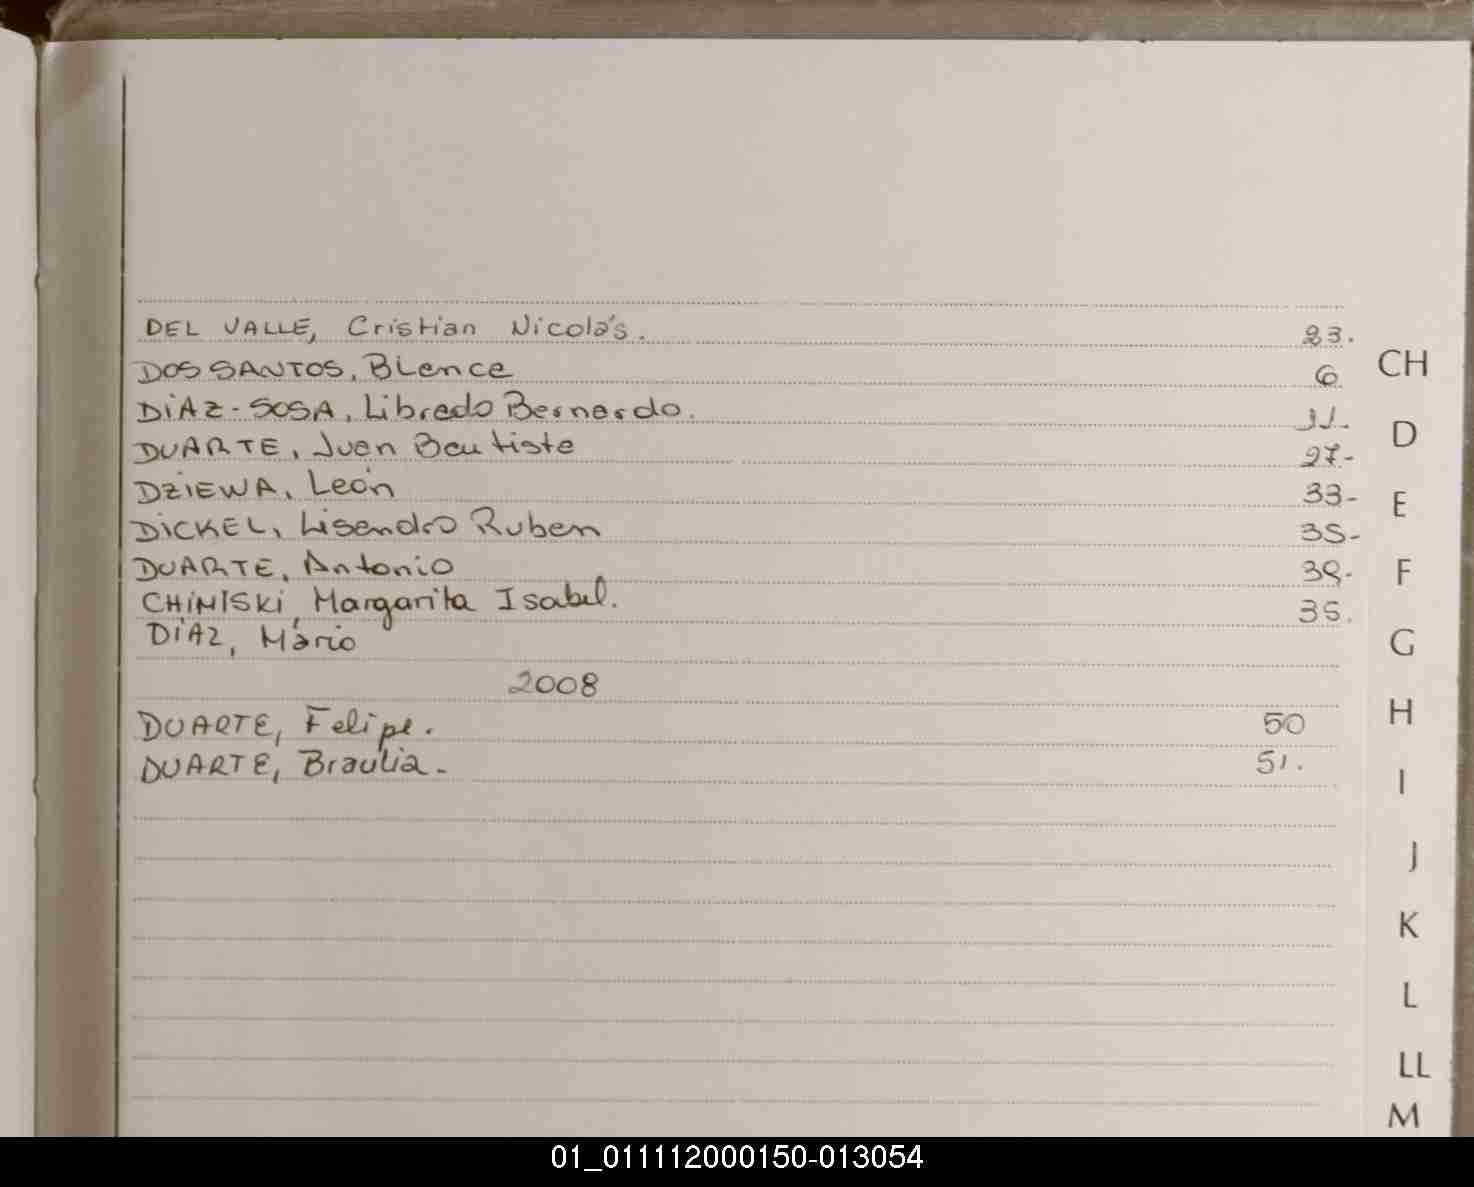 DEL VALLE, Cristian Nicolás. 23.
DOS SANTOS, Blanca 6
DiAZ-SOSA, Librado Bernardo. 11.
DUARTE, Juan Bautista 27-
DZIEWA, León 33-
DICKEL, Lisandro Ruben 35-
DUARTE, Antonio 39-
CHIMISKI, Margarita Isabel. 35.
DÍAZ, Mário
2008
DUARTE, Felipe. 50
DUARTE, Braulia. 51.
CH
D
E
F
G
H
I
J
K
L
LL
M
01_011112000150-013054